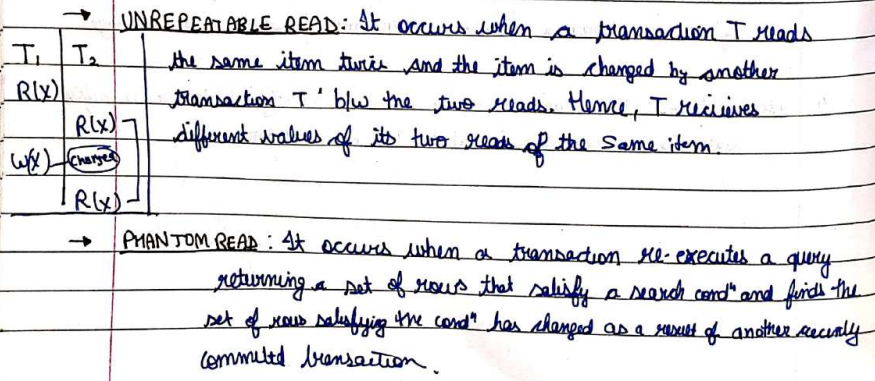 → UNREPEATABLE READ: It occurs when a transaction T reads
T₁ T₂ the same item twice and the item is changed by another
R(X) transaction T' b/w the two reads. Hence, T recieves
R(X) different values of its two reads of the same item.
W(X) changes
R(X)
→ PHANTOM READ: It occurs when a transaction re-executes a query
returning a set of rows that satisfy a search condⁿ and finds the
set of rows satisfying the condⁿ has changed as a result of another recently
committed transaction.